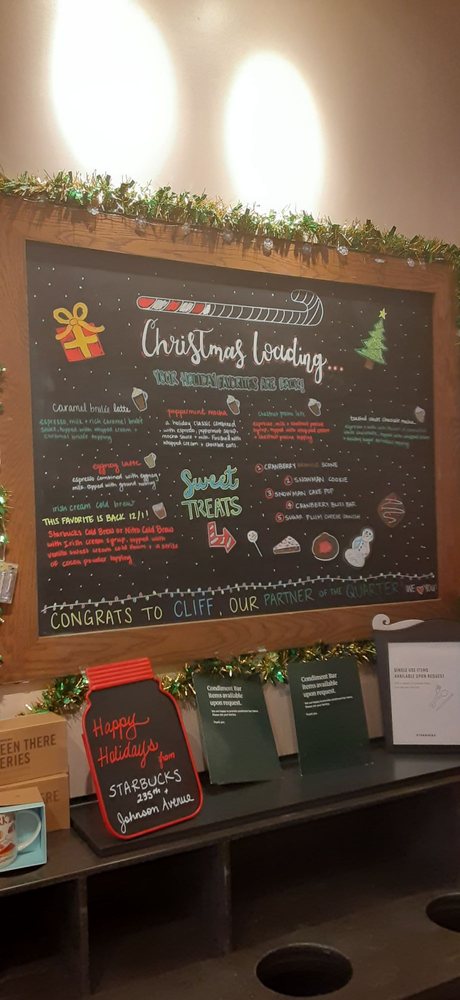 Christmas Loading...
YOUR HOLIDAY FAVORITES ARE BACK!
Caramel brulée latte
espresso, milk + rich caramel brulée
sauce, topped with whipped cream +
caramel brulée topping
peppermint mocha
a holiday classic combined
with espresso, peppermint syrup,
mocha sauce + milk. Finished with
whipped cream + chocolate curls.
chestnut praline latte
espresso, milk + chestnut praline
syrup, topped with whipped cream
+ chestnut praline topping
toasted white chocolate mocha
eggnog latte
espresso combined with eggnog +
milk topped with ground nutmeg
irish cream cold brew
THIS FAVORITE IS BACK 12/1!
Starbucks Cold Brew or Nitro Cold Brew
with Irish cream syrup, topped with
vanilla sweet cream cold foam + a
of cocoa powder topping
Sweet
TREATS
① CRANBERRY ORANGE SCONE
② SNOWMAN COOKIE
③ SNOWMAN CAKE POP
④ CRANBERRY BLISS BAR
⑤ SUGAR PLUM CHEESE DANISH
CONGRATS TO CLIFF, OUR PARTNER OF THE QUARTER WE YOU!
Happy
Holidays
from
STARBUCKS
235th +
Johnson Avenue
Condiment Bar
items available
upon request.
Thank you.
Condiment Bar
items available
upon request.
Thank you.
SINGLE-USE ITEMS
AVAILABLE UPON REQUEST
STARBUCKS
EEN THERE
ERIES